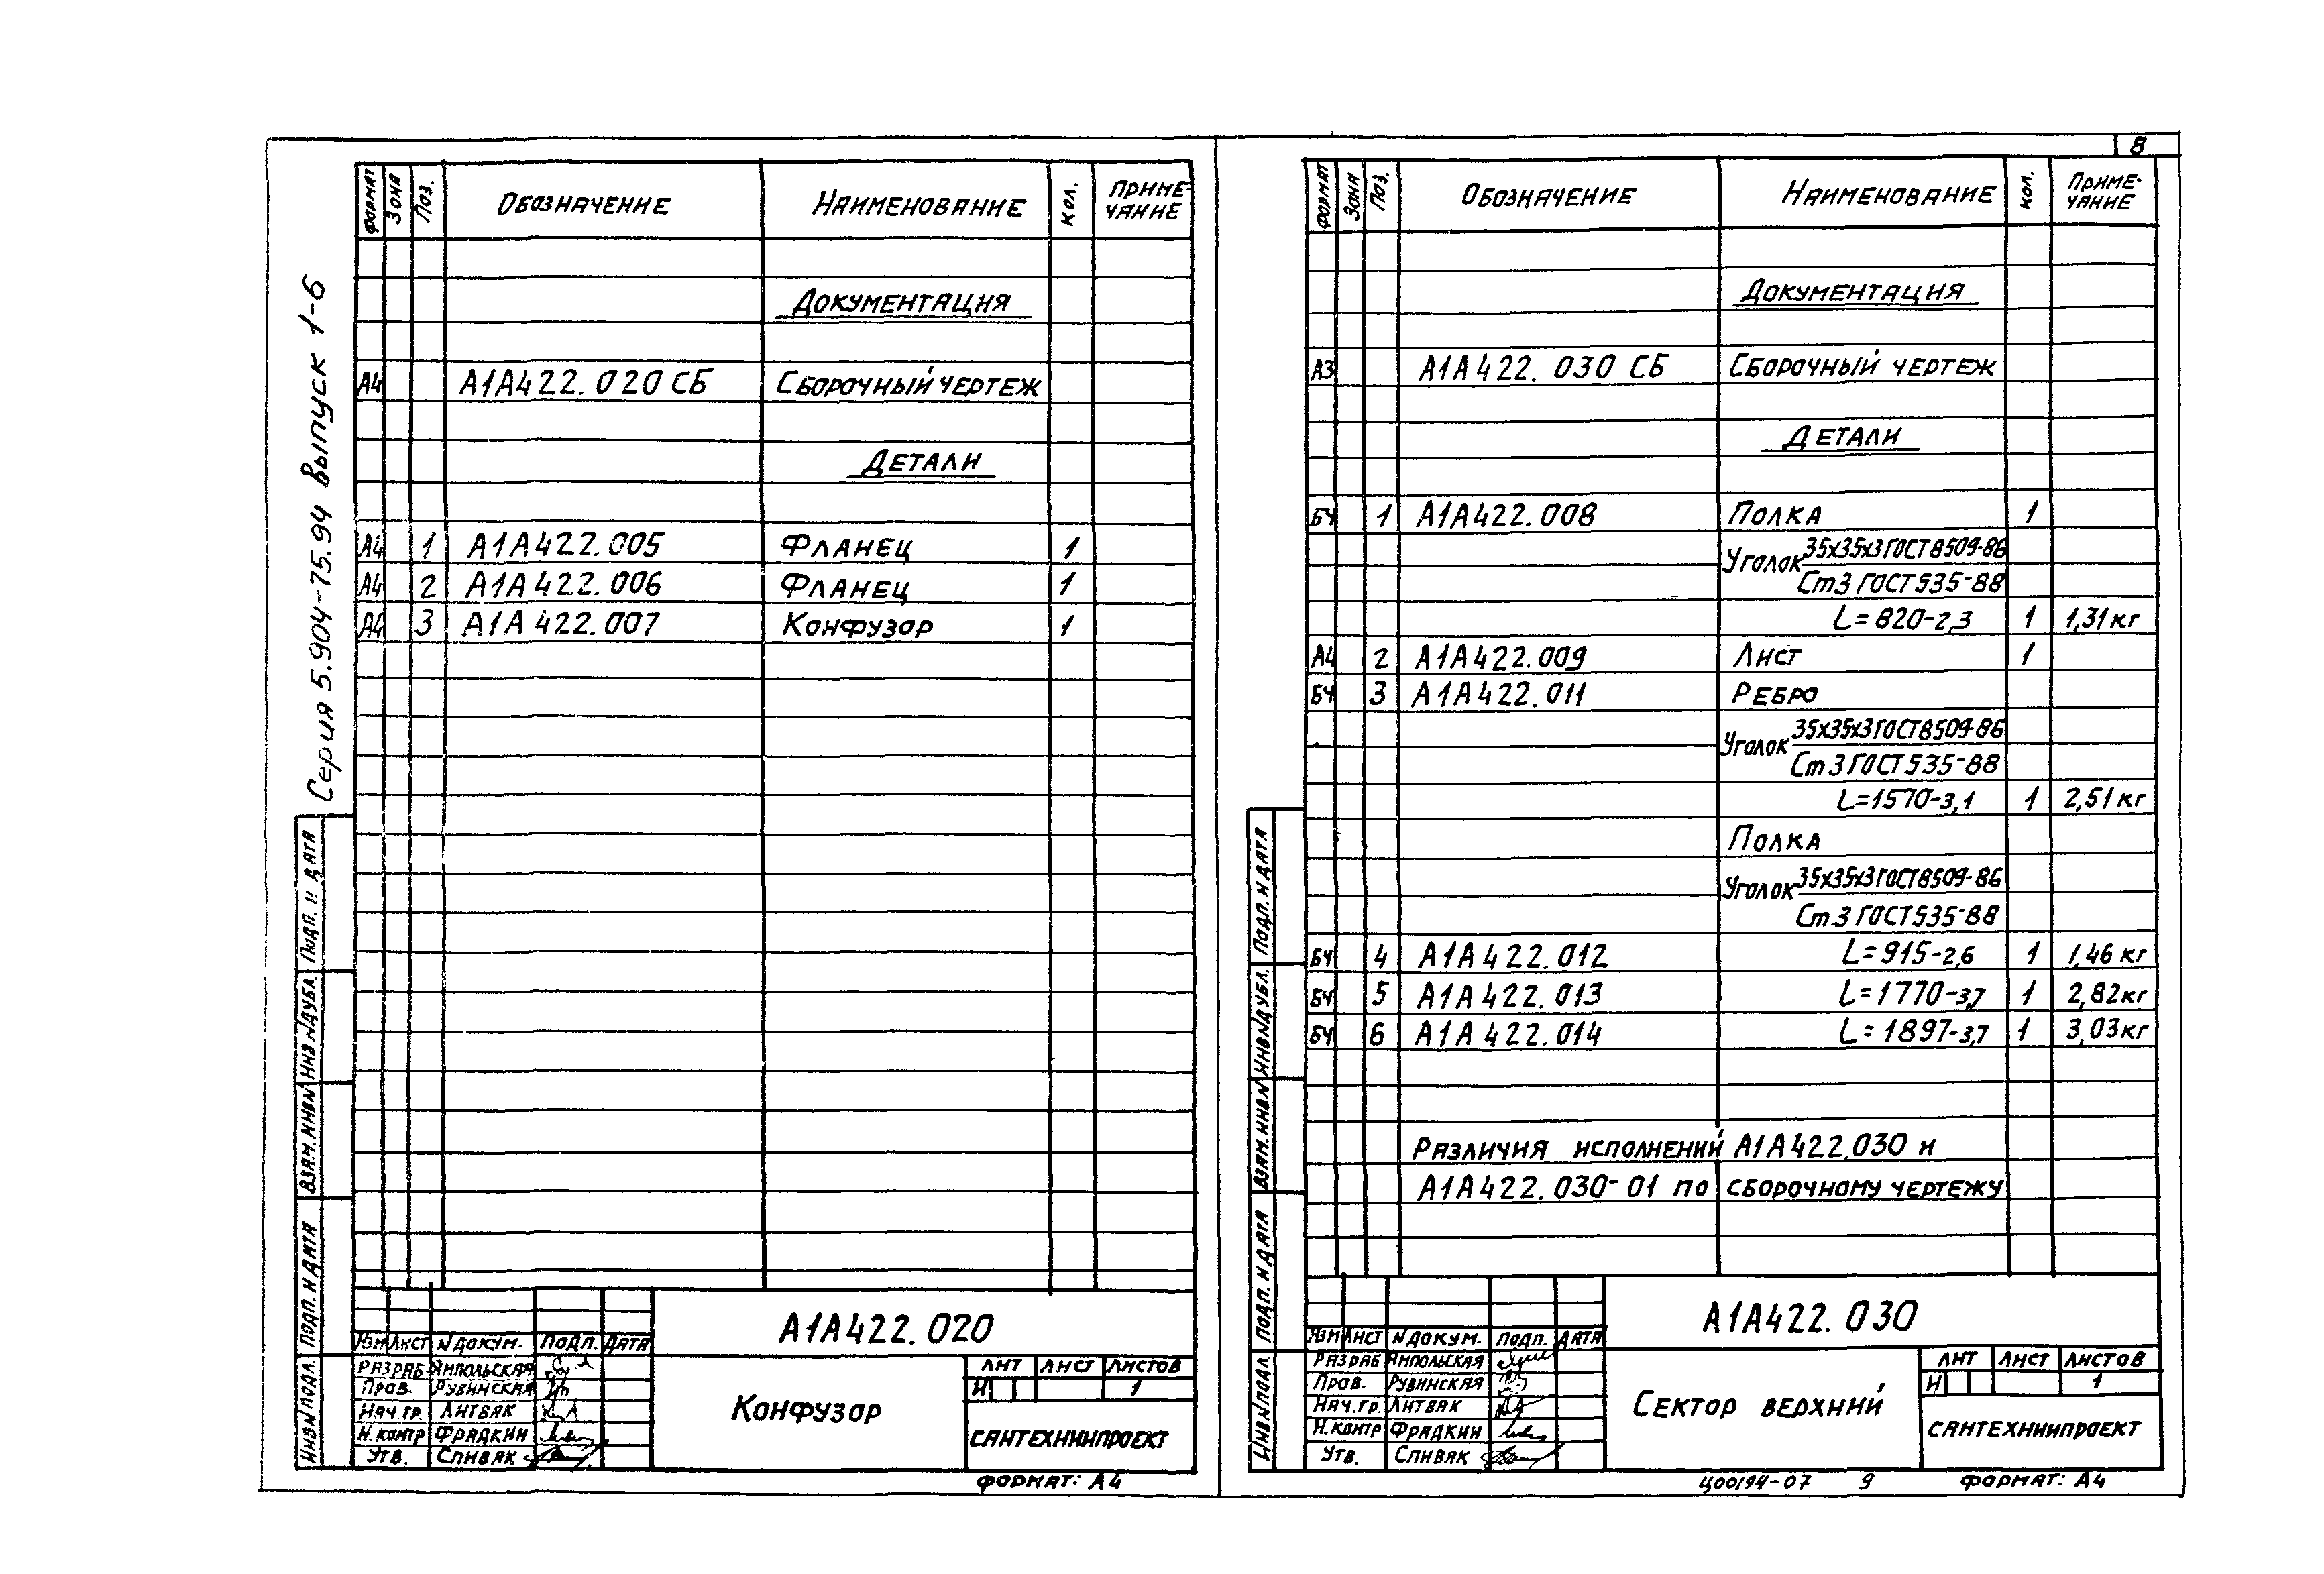 Серия 5.904-75.94 Выпуск 1-6
Формат Зона Поз. Обозначение Наименование Кол. Примечание
Документация
А4 А1А422.020 СБ Сборочный чертеж
Детали
А4 1 А1А422.005 Фланец 1
А4 2 А1А422.006 Фланец 1
А4 3 А1А422.007 Конфузор 1
Подп. и дата
Инв № дубл.
Взам. инв №
Подп. и дата
Инв № подл.
А1А422.020
Изм Лист № докум. Подп. Дата
Разраб Ямпольская
Пров. Рувинская
Нач.гр. Литвак
Н.контр Фрадкин
Утв. Спивак
Конфузор
Лит Лист Листов
И 1
Сантехниипроект
Формат: А4
8
Формат Зона Поз. Обозначение Наименование Кол. Примечание
Документация
А3 А1А422.030 СБ Сборочный чертеж
Детали
БЧ 1 А1А422.008 Полка 1
Уголок 35х35х3 ГОСТ 8509-86
Ст3 ГОСТ 535-88
L=820-2,3 1 1,31 кг
А4 2 А1А422.009 Лист 1
БЧ 3 А1А422.011 Ребро
Уголок 35х35х3 ГОСТ 8509-86
Ст 3 ГОСТ 535-88
L=1570-3,1 1 2,51 кг
Полка
Уголок 35х35х3 ГОСТ 8509-86
Ст 3 ГОСТ 535-88
БЧ 4 А1А422.012 L=915-2,6 1 1,46 кг
БЧ 5 А1А422.013 L=1770-3,7 1 2,82 кг
БЧ 6 А1А422.014 L=1897-3,7 1 3,03 кг
Различия исполнений А1А422.030 и
А1А422.030-01 по сборочному чертежу
Подп. и дата
Инв № дубл.
Взам. инв №
Подп. и дата
Инв № подл.
А1А422.030
Изм Лист № докум. Подп. Дата
Разраб Ямпольская
Пров. Рувинская
Нач.гр. Литвак
Н.контр Фрадкин
Утв. Спивак
Сектор верхний
Лит Лист Листов
И 1
Сантехниипроект
Ц00194-07 9 Формат: А4